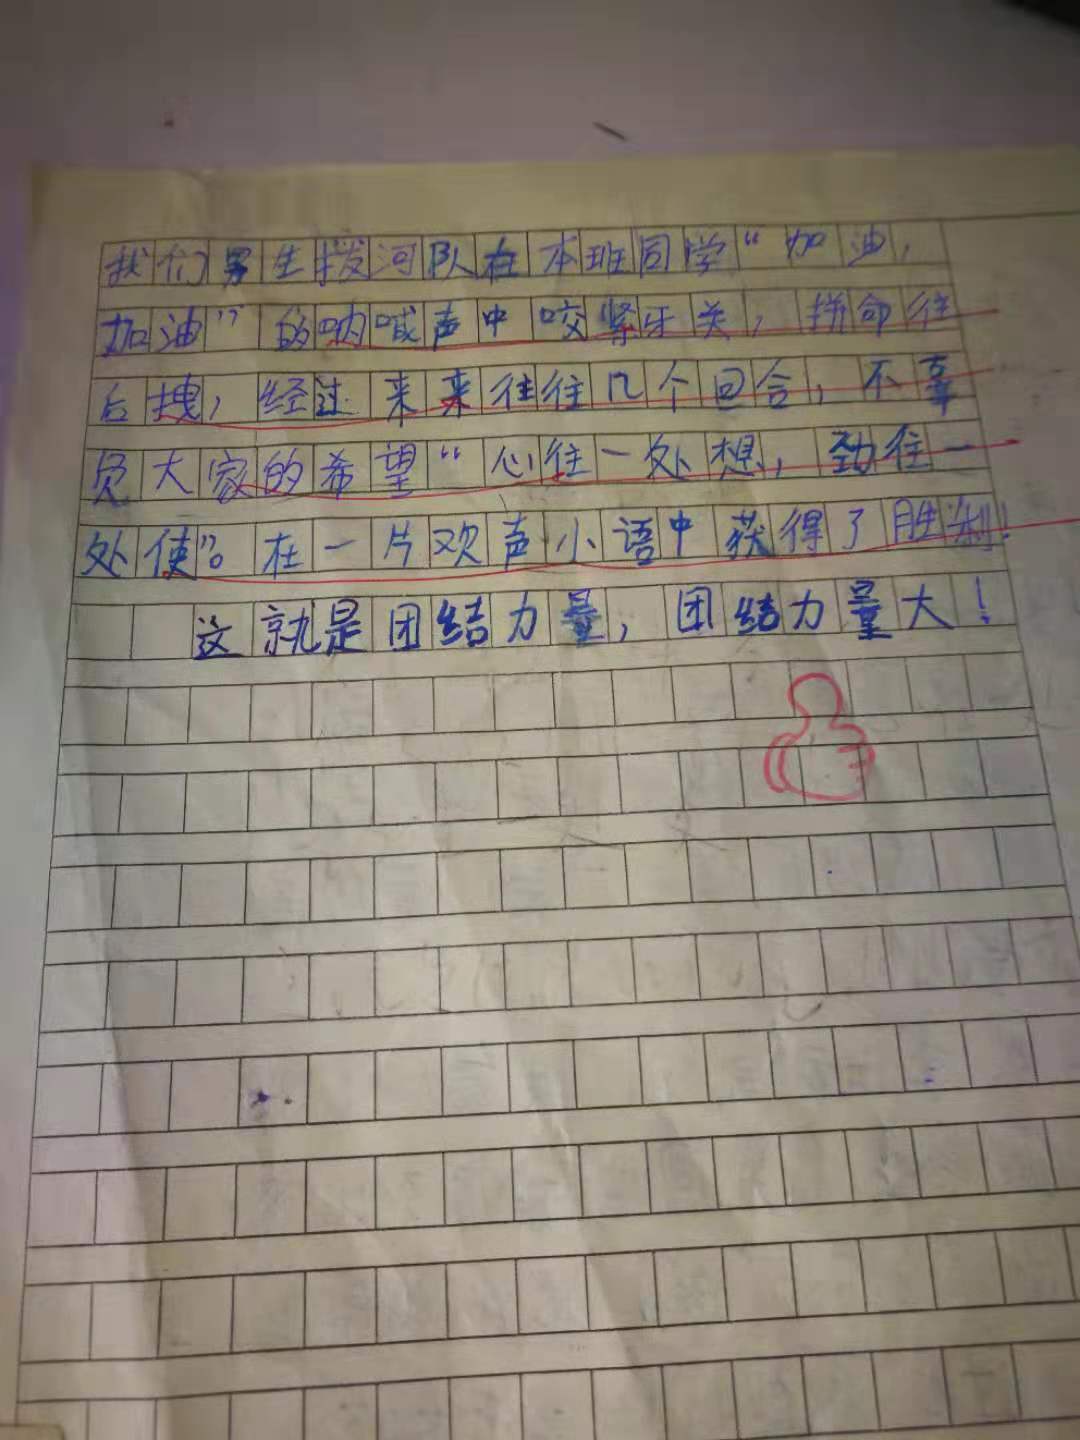 我们男生拨河队在本班同学“加油，
加油”的呐喊声中咬紧牙关，拼命往
后拽，经过来来往往几个回合，不辜
负大家的希望“心往一处想，劲往一
处使”。在一片欢声小语中获得了胜利！
这就是团结力量，团结力量大！